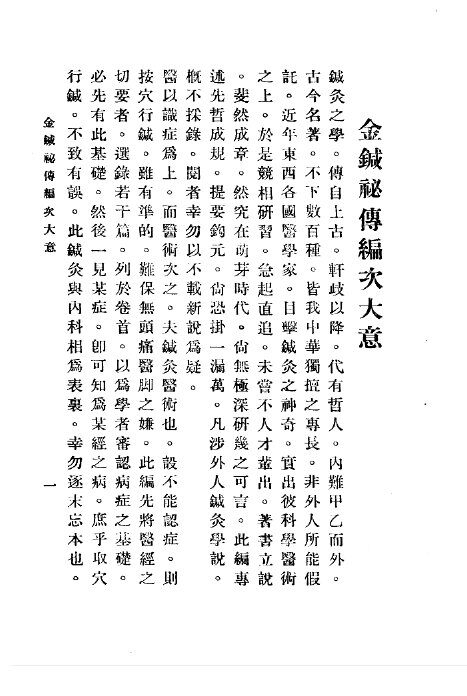 金鍼祕傳編次大意
鍼灸之學。傳自上古。軒歧以降。代有哲人。內難甲乙而外。
古今名著。不下數百種。皆我中華獨擅之專長。非外人所能假
託。近年東西各國醫學家。目擊鍼灸之神奇。實出彼科學醫術
之上。於是競相研習。急起直追。未嘗不人才蔚出。著書立說
。斐然成章。然究在萌芽時代。尙無極深研幾之可言。此編專
述先哲成規。提要鉤元。尙恐掛一漏萬。凡涉外人鍼灸學說。
槪不採錄。閱者幸勿以不載新說爲疑。
醫以識症爲上。而醫術次之。夫鍼灸醫術也。設不能認症。則
按穴行鍼。雖有準的。難保無頭痛醫脚之嫌。此編先將醫經之
切要者。選錄若干篇。列於卷首。以爲學者審認病症之基礎。
必先有此基礎。然後一見某症。卽可知爲某經之病。庶乎取穴
行鍼。不致有誤。此鍼灸與內科相爲表裏。幸勿逐末忘本也。
金鍼祕傳編次大意
一